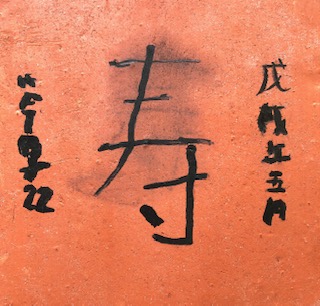 戊戌年五月
寿
22